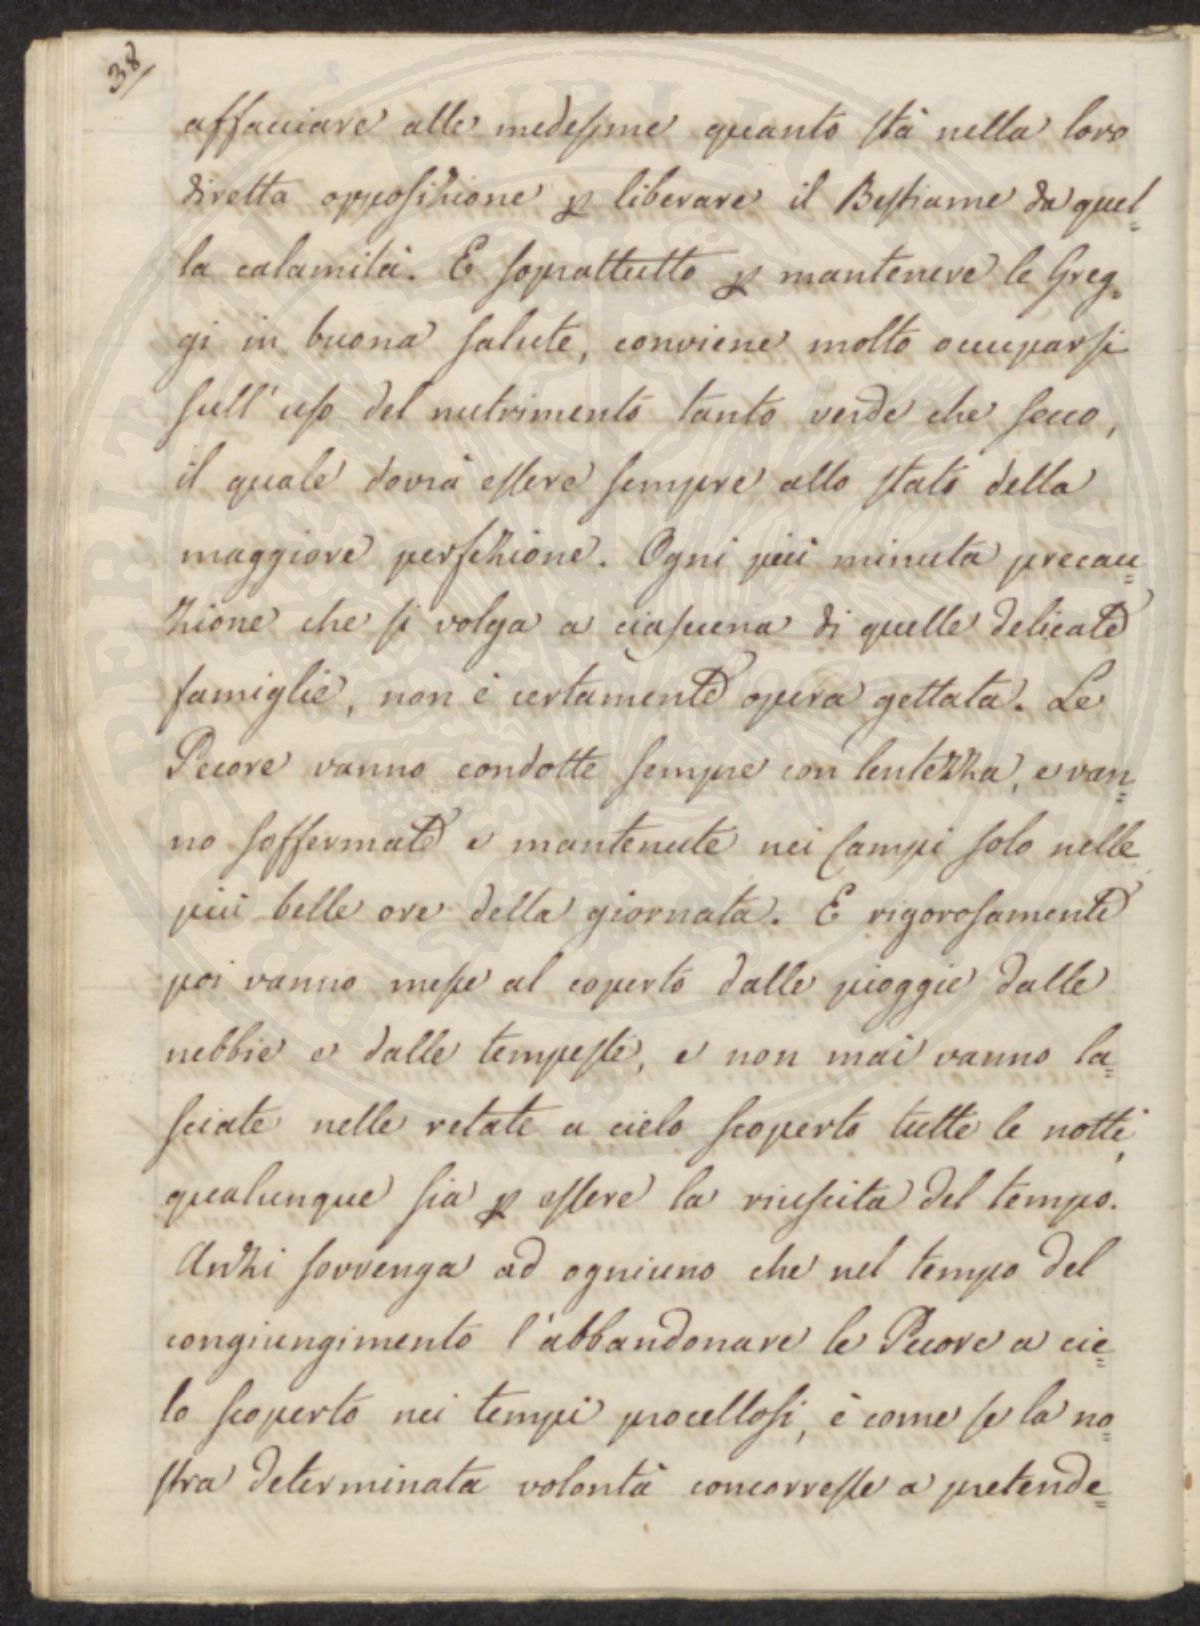 38/
affacciare alle medesime quanto stà nella loro
diretta opposizione p liberare il Bestiame da quel=
la calamità. E soprattutto p mantenere le Greg=
gi in buona salute, conviene molto occuparsi
sull'uso del nutrimento tanto verde che secco,
il quale dovrà essere sempre allo stato della
maggiore perfezione. Ogni più minuta precau=
zione che si volga a ciascuna di quelle delicate
famiglie, non è certamente opera gettata. Le
Pecore vanno condotte sempre con lentezza, e van=
no soffermate e mantenute nei Campi solo nelle
più belle ore della giornata. E rigorosamente
poi vanno messe al coperto dalle pioggie dalle
nebbie e dalle tempeste, e non mai vanno la=
sciate nelle retate a cielo scoperto tutte le notti,
qualunque sia p essere la riuscita del tempo.
Anzi sovvenga ad ogniuno che nel tempo del
congiungimento l'abbandonare le Pecore a cie=
lo scoperto nei tempi procellosi, è come se la no=
stra determinata volontà concorresse a pretende=